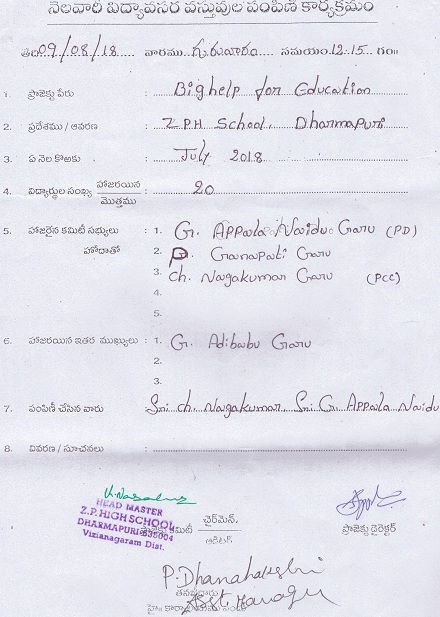 నెలవారీ విద్యావసర వస్తువుల పంపిణీ కార్యక్రమం
తేది 09/08/18 వారము గురువారం సమయం 12.15 గం॥
1. ప్రాజెక్టు పేరు : Bighelp for Education
2. ప్రదేశము / ఆవరణ : Z.P.H School, Dharmapuri
3. ఏ నెల కొఱకు : July 2018
4. విద్యార్థుల సంఖ్య హాజరయిన : 20
మొత్తము
5. హాజరైన కమిటీ సభ్యులు : 1. G. Appala Naidu Garu (PD)
హోదాతో 2. P. Ganapati Garu
3. Ch. Nagakumar Garu (PCC)
4.
5.
6. హాజరయిన ఇతర ముఖ్యులు : 1. G. Adibabu Garu
2.
3.
7. పంపిణీ చేసిన వారు Sri Ch. Nagakumar Sri G. Appala Naidu
8. వివరణ / సూచనలు :
HEAD MASTER
Z.P. HIGH SCHOOL
DHARMAPURI-535004
Vizianagaram Dist.
కమిటీ ఛైర్మెన్, ప్రాజెక్టు డైరెక్టర్
ఆడిటర్
P. Dhanalakshmi
Asst Manager